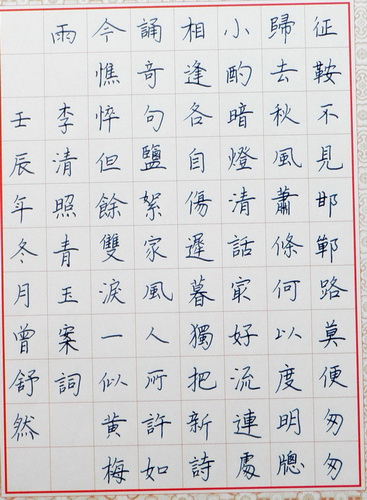 征鞍不見邯鄲路莫便匆匆
歸去秋風蕭條何以度明牕
小酌暗燈清話冣好流連處
相逢各自傷遲暮獨把新詩
誦奇句鹽絮家風人所許如
今憔悴但餘雙淚一似黃梅
雨 李清照青玉案詞
壬辰年冬月曾舒然